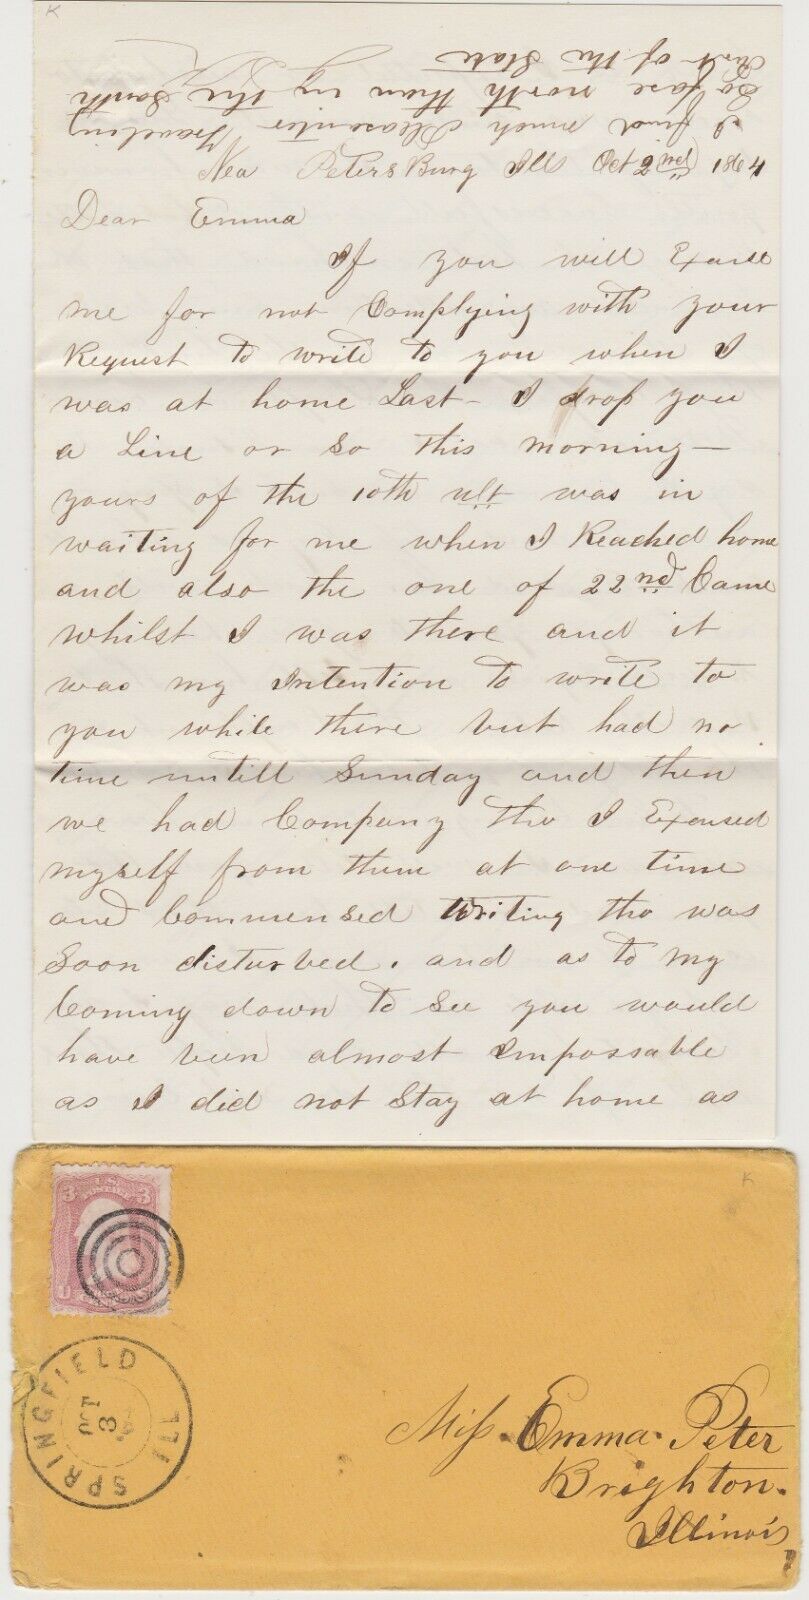 I find much pleasenter traveling
So fare north than in the South
Part of the State
Nea PetersBurg Ills Oct 2nd 1864
Dear Emma
If you will Excuse
me for not Complying with your
Request to write to you when I
was at home Last - I drop you
a Line or so this morning —
yours of the 10th ult was in
waiting for me when I Reached home
and also the one of 22nd Came
whilst I was there and it
was my Intention to write to
you while there but had no
time untill Sunday and then
we had Company tho I Excused
myself from them at one time
and Commensed Writing tho was
Soon disturbed. and as to my
Coming down to See you would
have been almost Impossable
as I did not Stay at home as
K
K
U.S. POSTAGE
3 3
U
SPRINGFIELD ILL
OCT
3
Miss Emma Peter
Brighton.
Illinois